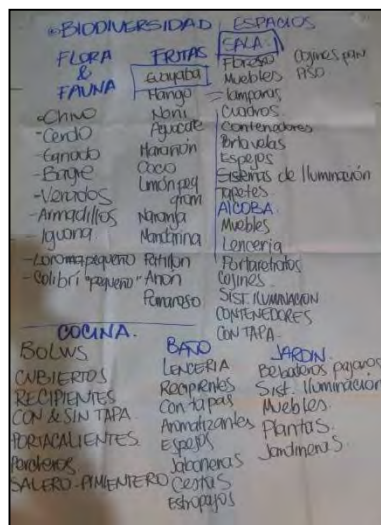 BIODIVERSIDAD
FLORA
&
FAUNA
-Chivo
-Cerdo
-Ganado
-Bagre
-Venados
-Armadillos
-Iguana
-Loro
-Colibrí "pequeño"
FRUTAS
Guayaba
Mango
Noni
Aguacate
Marañón
Coco
Limón peq
gran
Naranja
Mandarina
Patillon
Anon
ESPACIOS
SALA.
Muebles
lamparas
Cuadros
Contenedores
Portavelas
Espejos
Sistemas de Iluminación
Tapetes
Cojines para
Piso
ALCOBA
Muebles
Lenceria
Portaretratos
Cojines
SIST. ILUMINACION
CONTENEDORES
CON TAPA.
COCINA.
BOLWS
CUBIERTOS
RECIPIENTES
CON & SIN TAPA.
PORTACALIENTES.
SALERO-PIMIENTERO
BAÑO
LENCERIA
Recipientes
Con tapas
Aromatizantes
Espejos
Jaboneras
Cestas
Estropajos
JARDIN.
Bebederos pajaros
Sist. Iluminación
Muebles.
Plantas.
Jardineras.